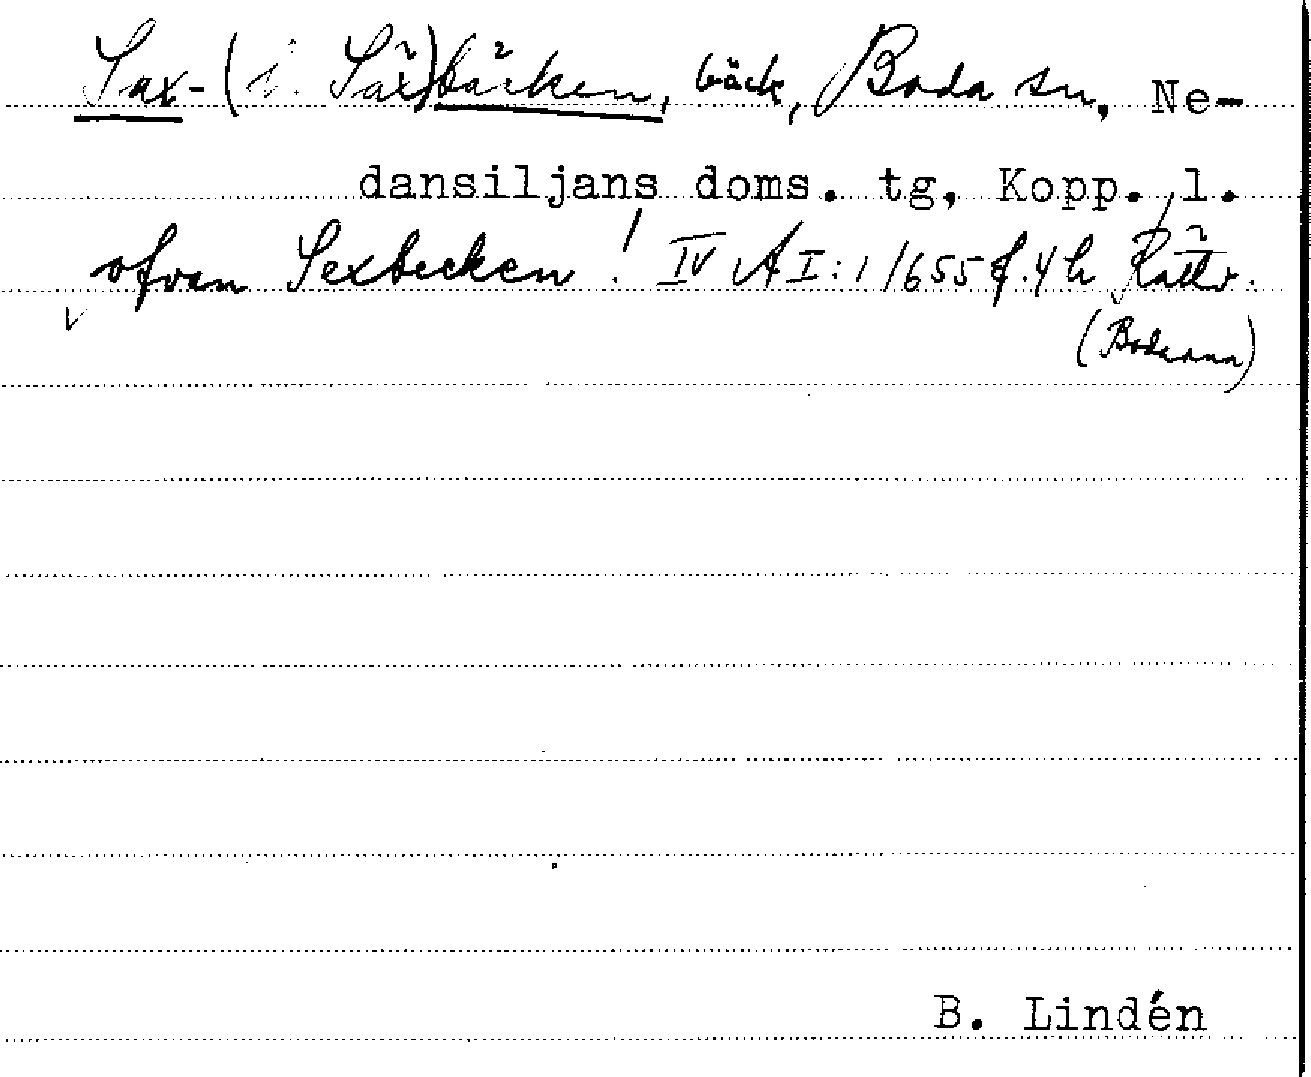 Sax- (i. Säx)bäcken, bäck, Boda sn, Ne-
dansiljans doms. tg, Kopp. l.
ofvan Sexbecken! IV A I:1/1655 f. 4 h Rättv.
(Bodarna)
B. Lindén